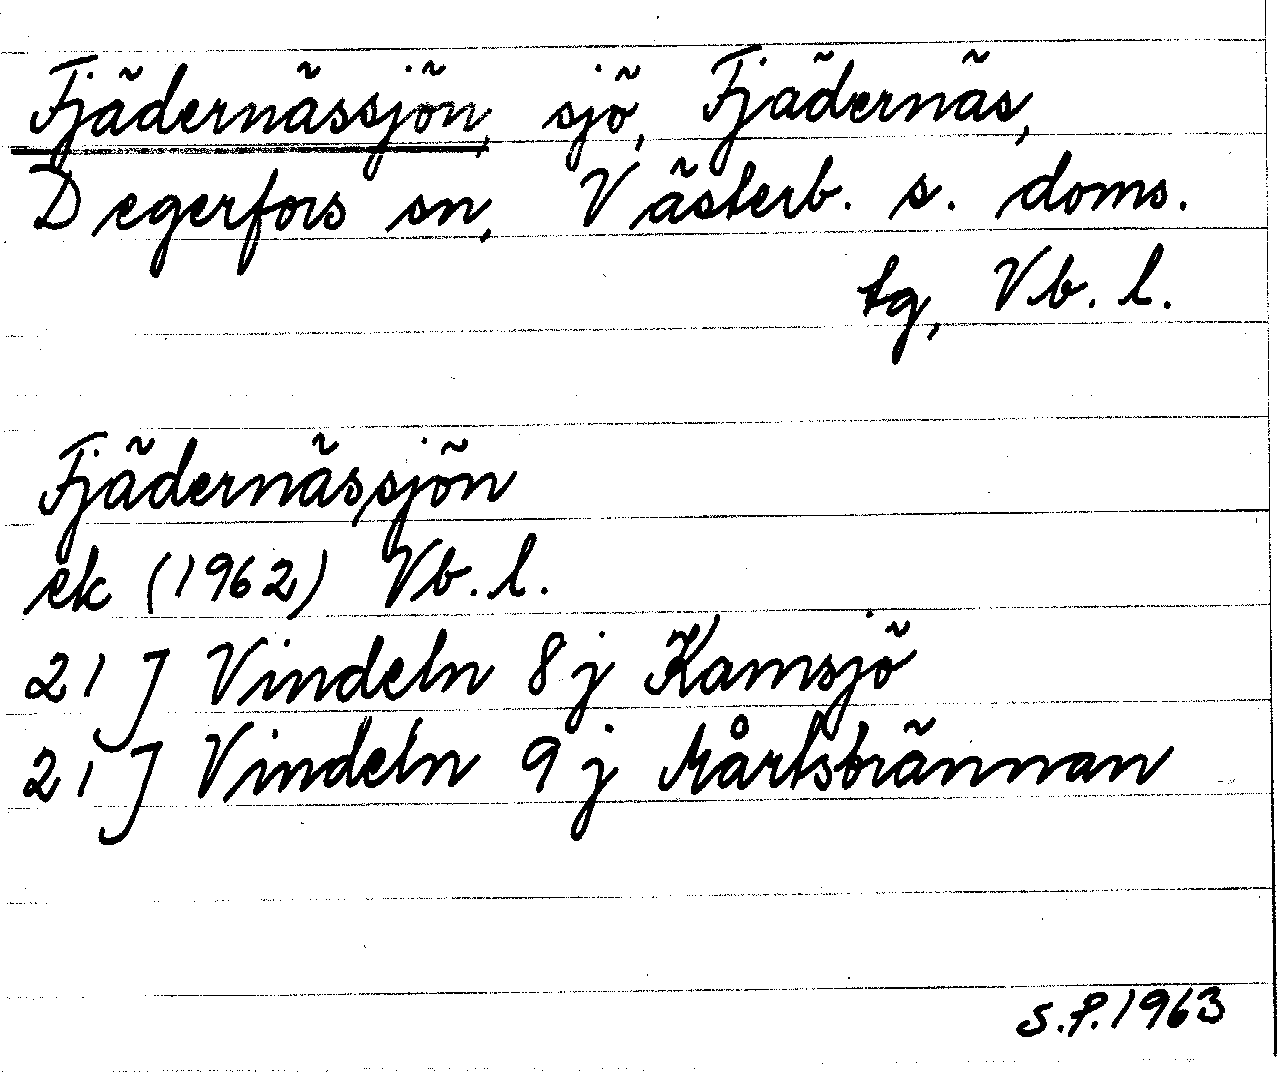 Fjädernässjön, sjö, Fjädernäs,
Degerfors sn, Västerb. s. doms.
tg, Vb. l.
Fjädernässjön
ek (1962) Vb. l.
21 J Vindeln 8 j Kamsjö
21 J Vindeln 9 j Mårtsbrännan
S.P. 1963